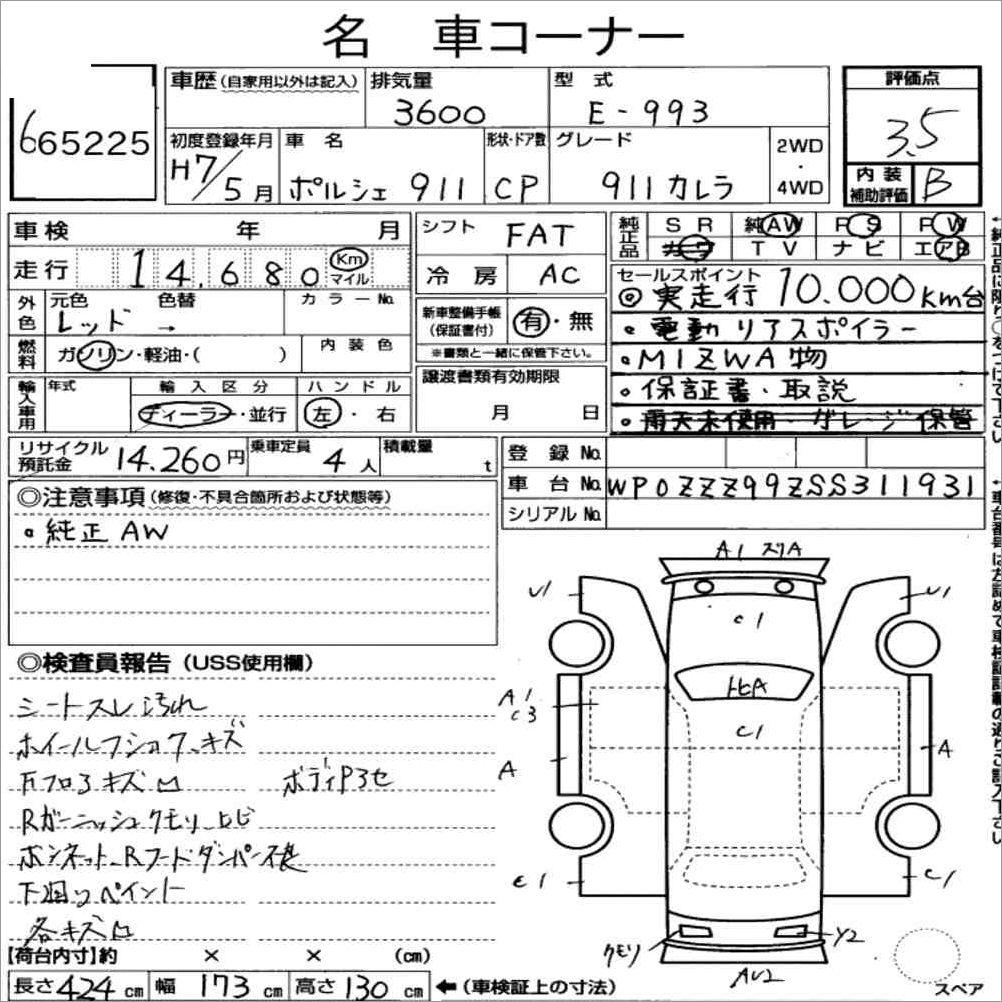 名 車コーナー
665225
車歴(自家用以外は記入) 排気量 型 式 評価点
3600 E-993 3.5
初度登録年月 車 名 形状・ドア数 グレード 2WD・4WD 内装補助評価 B
H7/5月 ポルシェ 911 CP 911 カレラ
車検 年 月
走行 14,680 Km マイル
シフト FAT
冷房 AC
純正品 SR 純AW PS PW
カワ TV ナビ エアB
外色 元色 色替 カラーNo.
レッド →
新車整備手帳(保証書付) 有・無
※書類と一緒に保管下さい。
燃料 ガソリン・軽油・( ) 内装色
輸入車用 年式 輸入区分 ハンドル
ディーラー・並行 左・右
譲渡書類有効期限
月 日
セールスポイント
◎実走行 10.000Km台
・電動リアスポイラー
・MIZWA物
・保証書・取説
・雨天未使用 ガレージ保管
リサイクル預託金 14.260円 乗車定員 4人 積載量 t
登録No.
車台No. WP0ZZZ99ZSS311931
シリアルNo.
◎注意事項(修復・不具合箇所および状態等)
・純正AW
◎検査員報告(USS使用欄)
シートスレ汚れ
ホイールフショク、キズ
Fフロ3キズ凹 ボディP3セ
Rガーニッシュクモリ、ヒビ
ボンネット、Rフードダンパー不良
下回りペイント
各キズ凹
A1 スリA
U1 U1
C1
トビA
A1
C3
C1
A A
E1 C1
クモリ Y2
AU2
スペア
【荷台内寸】約 × × (cm)
長さ424cm 幅173cm 高さ130cm ←(車検証上の寸法)